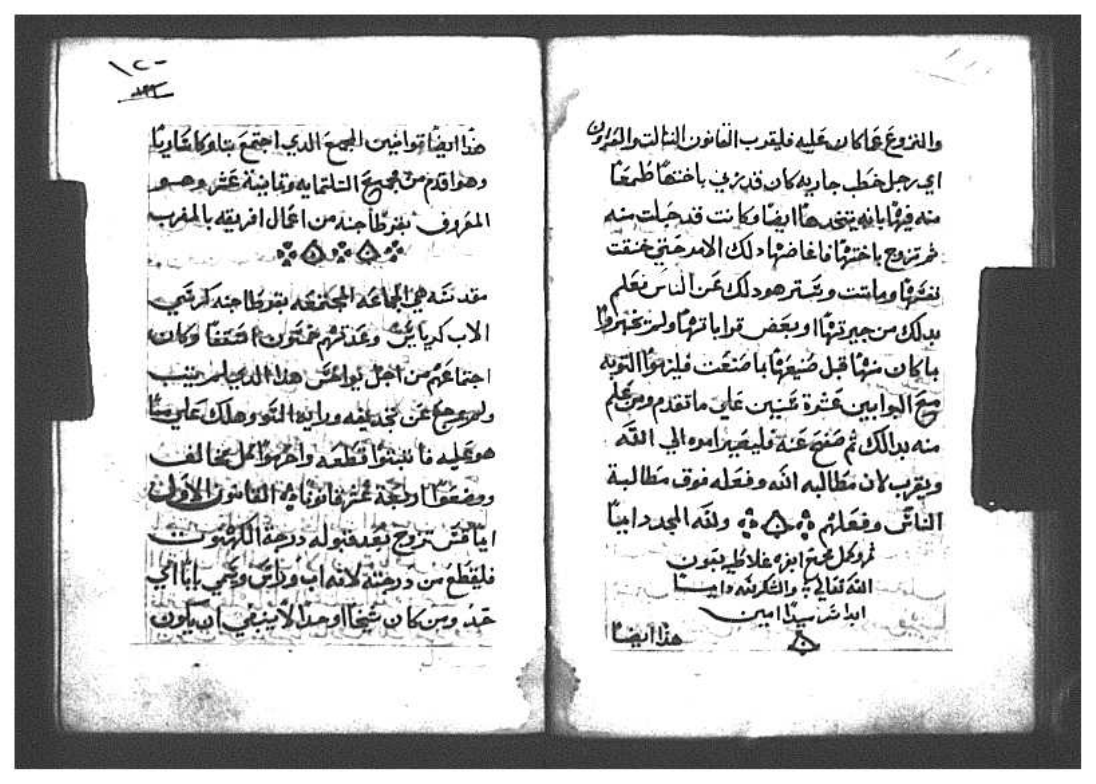 والنزوع عما كان عليه فليقرب القانون الثالث والعشرون
اي رجل خطب جاريه كان قد زني باختها طمعا
منه فيها بانه يتخدها ايضا وكانت قد حبلت منه
ثم تزوج باختها فاغاضها دلك الامر حتي خنقت
نفسها وماتت وتستر هو دلك عن الناس فعلم
بدلك من جيرتها او بعض قراباتها ولم يخبروا
بما كان منها قبل صنيعها بما صنعت فليلزموا التوبه
مع البوابين عشرة سنين علي ما تقدم ومن علم
منه بدالك ثم صفح عنه فليصير امره الي الله
ويقرب لان مطالبه الله وفعله فوق مطالبة
الناس وفعلهم ولله المجد دايما
ثم وكمل مجمع غلاطيه بعون
الله تعالي والشكر لله دايما
ابدا سرمدا امين
هذا ايضا
١٢٠
هذا ايضا قوانين المجمع الدي اجتمع
وهو اقدم من مجمع التلتمايه وتمانية عشر وهو
المعروف بقرطاجنه من اعمال افريقه بالمغرب
مقدسه هي الجماعه المجتمعه بقرطاجنه كرسي
الاب كبريانس وعدتهم خمسون اسقفا وكان
اجتماعهم من اجل هذا الدي لم يتيب
ولم يرجع عن تجديفه ورايه السو وهلك علي ما
هو عليه فاتبتوا قطعه واحرموا كل مخالف
ووضعوا اربعة عشر قانونا القانون الاول
ايما قس تزوج بعد قبوله درجة الكهنوت
فليقطع من درجته لانه اب وراس وسمي بابا اي
جد ومن كان شيخا اوحدا لا ينبغي ان يكون